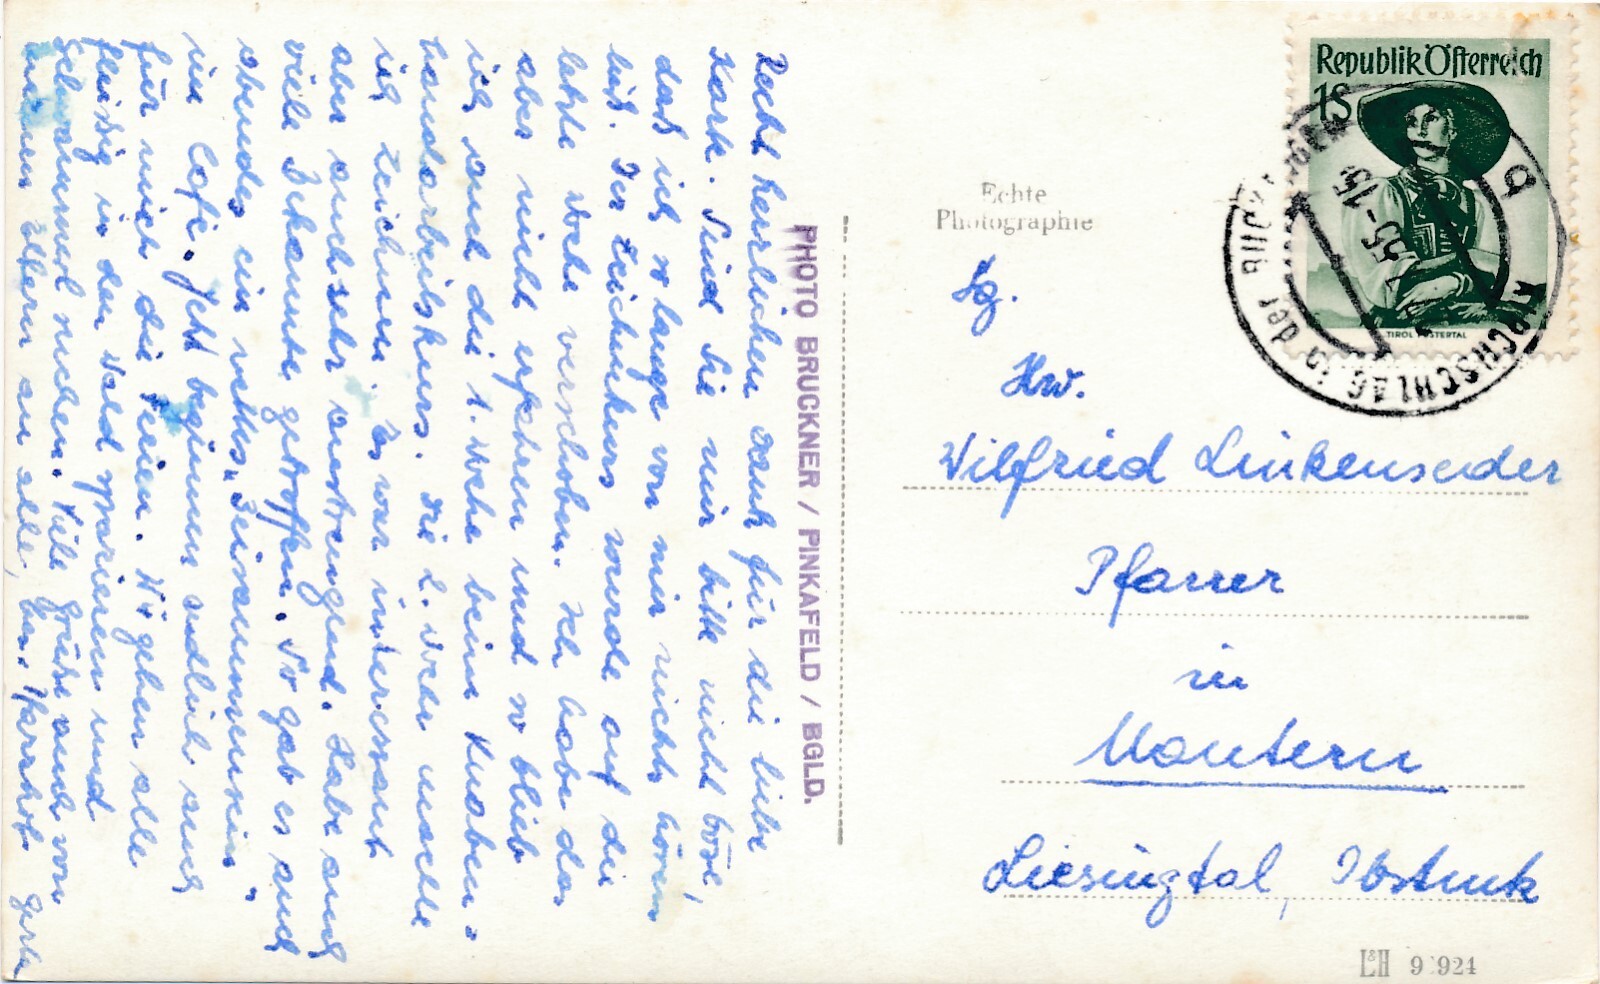 Recht herzlichen Dank für die liebe
Karte. Sind Sie mir bitte nicht böse,
daß ich so lange von mir nichts hören
ließ. Der Zeichenkurs wurde auf die
letzte Woche verschoben. Ich habe das
aber nicht erfahren und so blieb
ich auch die 1. Woche beim Knaben-
handarbeitskurs. Die 2. Woche machte
ich Zeichnen. Es war interessant
aber auch sehr anstrengend. Habe auch
viele Bekannte getroffen. So gab es auch
abends ein nettes "Beisammensein"
im Cafe. Jetzt beginnen endlich auch
für mich die Ferien. Wir gehen alle
fleißig in den Wald spazieren und
Schwammerl suchen. Viele Grüße auch von
meinen Eltern an alle, bes. Pfarrhof
PHOTO BRUCKNER / PINKAFELD / BGLD.
Echte
Photographie
Republik Österreich
1S
TIROL PUSTERTAL
KIRCHSCHLAG in der
55-15
b
Sg.
Hw.
Wilfried Linkenseder
Pfarrer
in
Mautern
Liesingtal, Obstmk
L&H 9 924